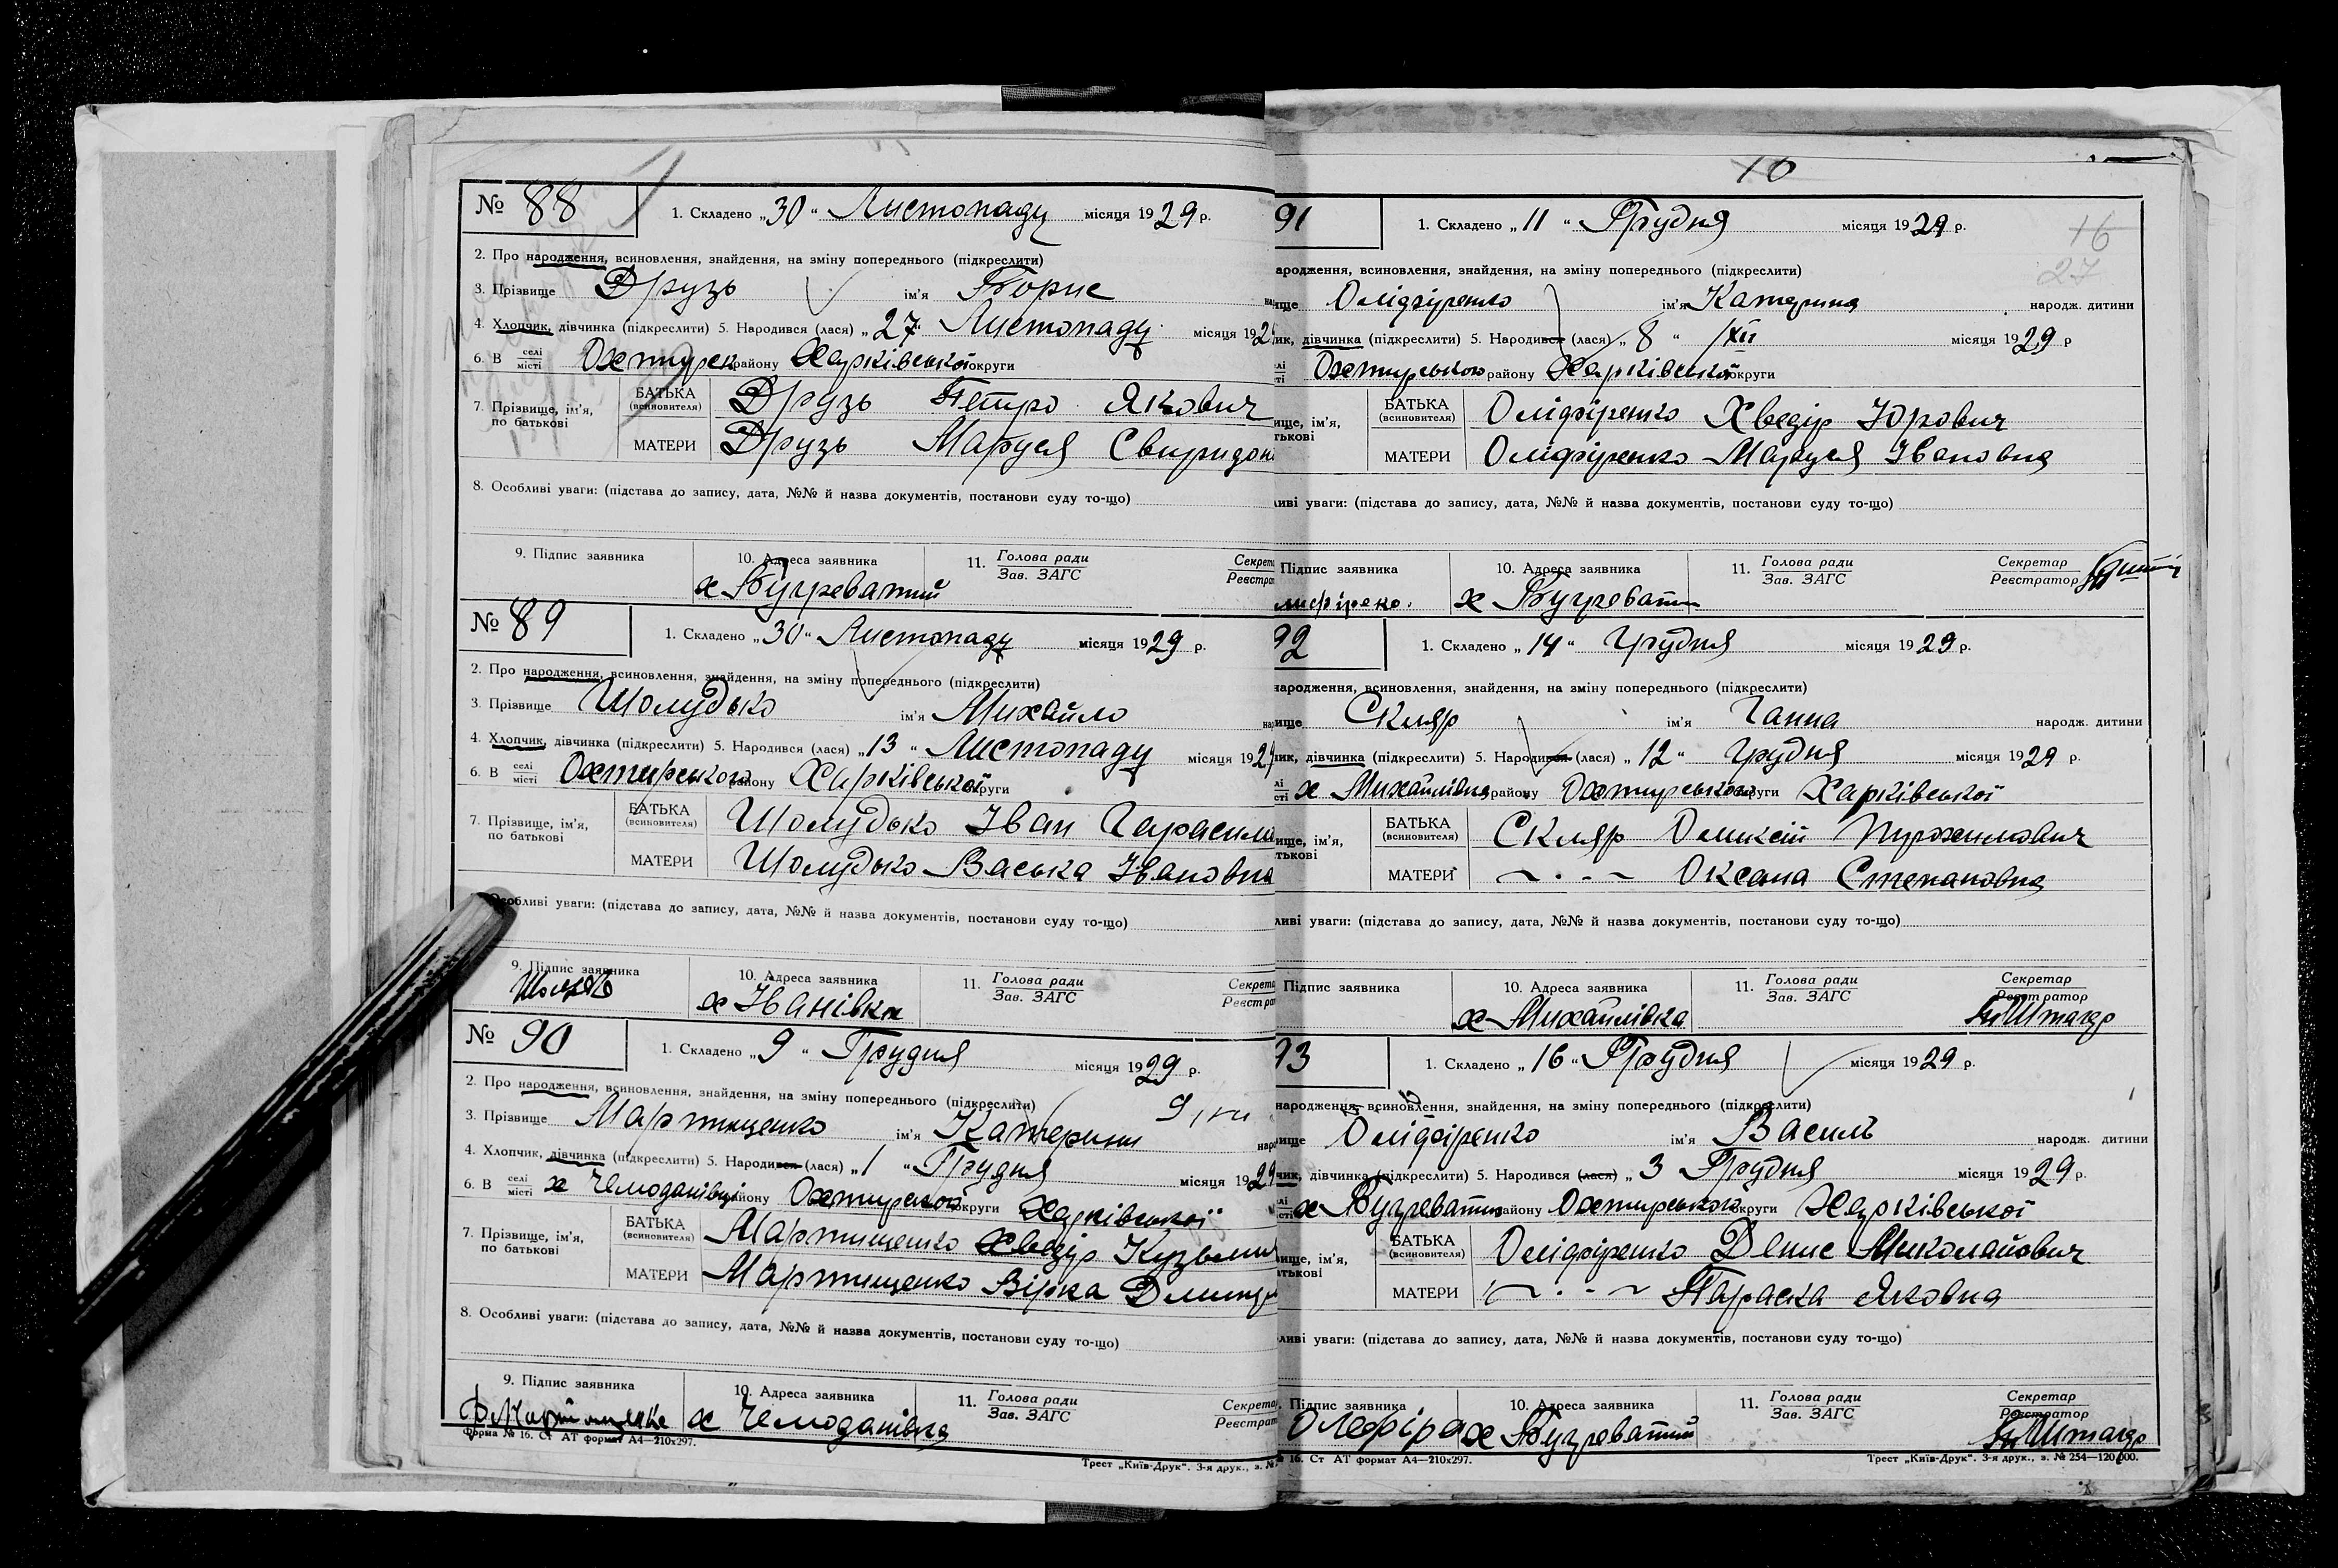 № 88
1. Складено „30“ Листопаду місяця 1929 р.
2. Про народження, всиновлення, знайдення, на зміну попереднього (підкреслити)
3. Прізвище Друзь ім'я Борис
4. Хлопчик, дівчинка (підкреслити) 5. Народився (лася) „27“ Листопаду місяця 192
6. В селі місті Охтирськ району Харківської округи
7. Прізвище, ім'я, по батькові
БАТЬКА (всиновителя) Друзь Петро Якович
МАТЕРИ Друзь Маруся Свиридон
8. Особливі уваги: (підстава до запису, дата, №№ й назва документів, постанови суду то-що)
9. Підпис заявника 10. Адреса заявника 11. Голова ради Зав. ЗАГС
х Бугреватий
№ 89
1. Складено „30“ Листопаду місяця 1929 р.
2. Про народження, всиновлення, знайдення, на зміну попереднього (підкреслити)
3. Прізвище Шолудько ім'я Михайло
4. Хлопчик, дівчинка (підкреслити) 5. Народився (лася) „13“ Листопаду місяця 192
6. В селі місті Охтирського району Харківської округи
7. Прізвище, ім'я, по батькові
БАТЬКА (всиновителя) Шолудько Іван Гарасим
МАТЕРИ Шолудько Васька Івановна
Особливі уваги: (підстава до запису, дата, №№ й назва документів, постанови суду то-що)
9. Підпис заявника 10. Адреса заявника 11. Голова ради Зав. ЗАГС
х Іванівка
№ 90
1. Складено „9“ Грудня місяця 1929 р.
2. Про народження, всиновлення, знайдення, на зміну попереднього (підкреслити)
3. Прізвище Мартищенко ім'я Катерина
4. Хлопчик, дівчинка (підкреслити) 5. Народився (лася) „1“ Грудня місяця 1929
6. В селі місті х Чемоданівці району Охтирской округи Харківської
7. Прізвище, ім'я, по батькові
БАТЬКА (всиновителя) Мартищенко Хведір Кузьми
МАТЕРИ Мартищенко Вірка
8. Особливі уваги: (підстава до запису, дата, №№ й назва документів, постанови суду то-що)
9. Підпис заявника 10. Адреса заявника 11. Голова ради Зав. ЗАГС
х Чемоданівка
Форма № 16. Ст АТ формат А4—210х297.
Трест „Київ-Друк“. 3-я друк., з. №
16
16
27
91
1. Складено „11“ Грудня місяця 1929 р.
ародження, всиновлення, знайдення, на зміну попереднього (підкреслити)
ище Оліфіренко ім'я Катерина народж. дитини
ик, дівчинка (підкреслити) 5. Народився (лася) „8“ /XII місяця 1929 р
Охтирського району Харківської округи
ище, ім'я, тькові
БАТЬКА (всиновителя) Оліфіренко Хведір Юрович
МАТЕРИ Оліфіренко Маруся Івановна
иві уваги: (підстава до запису, дата, №№ й назва документів, постанови суду то-що)
Підпис заявника 10. Адреса заявника 11. Голова ради Зав. ЗАГС Секретар Реєстратор
х Бугревати
92
1. Складено „14“ Грудня місяця 1929 р.
ародження, всиновлення, знайдення, на зміну попереднього (підкреслити)
ище Скляр ім'я Ганна народж. дитини
ик, дівчинка (підкреслити) 5. Народився (лася) „12“ Грудня місяця 1929 р.
х Михайлівка району Охтирського округи Харківської
ище, ім'я, тькові
БАТЬКА (всиновителя) Скляр Оликсій
МАТЕРИ — · — Оксана Степановна
иві уваги: (підстава до запису, дата, №№ й назва документів, постанови суду то-що)
Підпис заявника 10. Адреса заявника 11. Голова ради Зав. ЗАГС Секретар Реєстратор
х Михайлівка
93
1. Складено „16“ Грудня місяця 1929 р.
народження, всиновлення, знайдення, на зміну попереднього (підкреслити)
ище Оліфіренко ім'я Василь народж. дитини
чик, дівчинка (підкреслити) 5. Народився (лася) „3 Грудня місяця 1929 р.
х Бугревати району Охтирського округи Харківської
ище, ім'я, тькові
БАТЬКА (всиновителя) Оліфіренко Денис Миколайович
МАТЕРИ — · — Параска Яковна
иві уваги: (підстава до запису, дата, №№ й назва документів, постанови суду то-що)
Підпис заявника 10. Адреса заявника 11. Голова ради Зав. ЗАГС Секретар Реєстратор
Олефіра х Бугреватий
16. Ст АТ формат А4—210х297.
Трест „Київ-Друк“. 3-я друк., з. № 254—120.000.